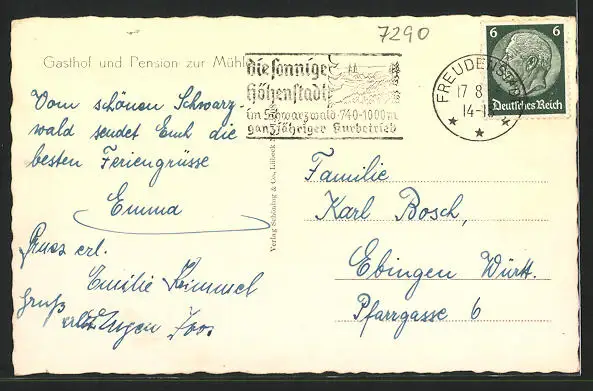 7290
Gasthof und Pension zur Mühle
die sonnige
Höhenstadt
im Schwarzwald · 740-1000m
ganzjähriger Kurbetrieb
FREUDENSTADT
17 8
14-15
6 6
Deutsches Reich
Vom schönen Schwarz
wald sendet Euch die
besten Feriengrüsse
Emma
Gruss erl.
Emilie Kimmel
Gruß
Eugen Joos
Verlag Schöning & Co., Lübeck
Familie
Karl Bosch,
Ebingen Württ.
Pfarrgasse 6